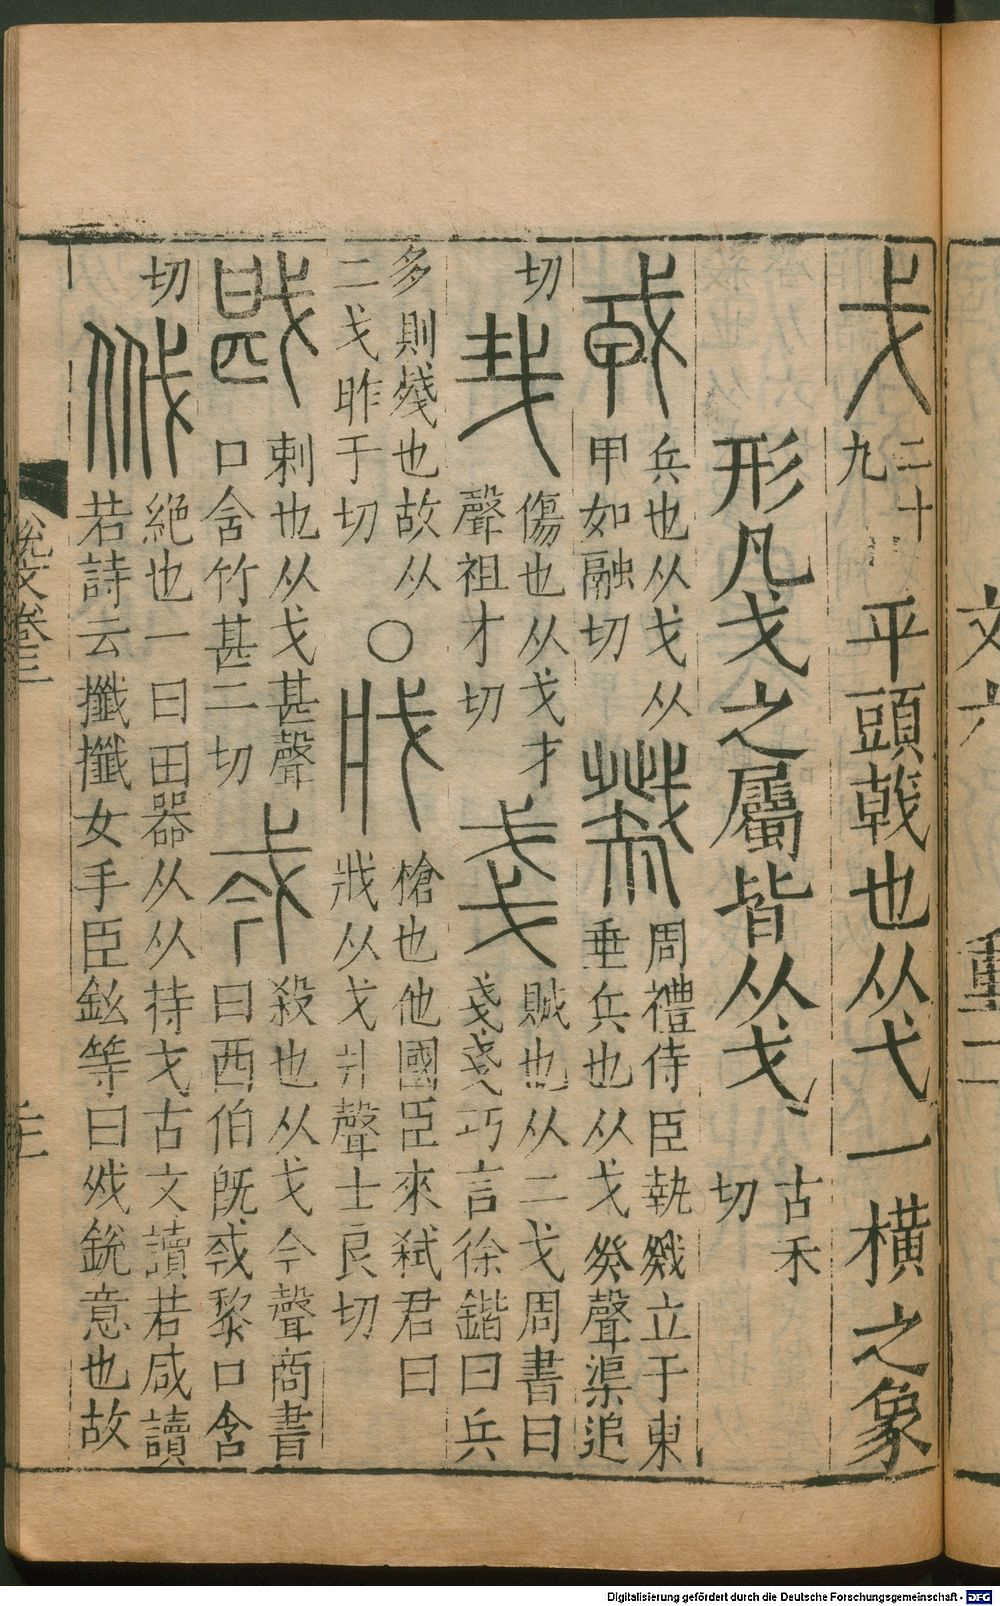 文六 重一
戈二十九平頭戟也从弋一橫之象
形凡戈之屬皆从戈古禾切
戎兵也从戈从甲如融切戣周禮侍臣執戣立于東垂兵也从戈癸聲渠追
切𢦏傷也从戈才聲祖才切戔賊也从二戈周書曰戔戔巧言徐鍇曰兵
多則殘也故从二戈昨于切〇戕槍也他國臣來弒君曰戕从戈爿聲士良切
戡刺也从戈甚聲口含竹甚二切𢦟殺也从戈今聲商書曰西伯旣𢦟黎口含
切㦰絕也一曰田器从从持戈古文讀若咸讀若詩云攕攕女手臣鉉等曰㦰銳意也故
說文卷三
Digitalisierung gefördert durch die Deutsche Forschungsgemeinschaft - DFG